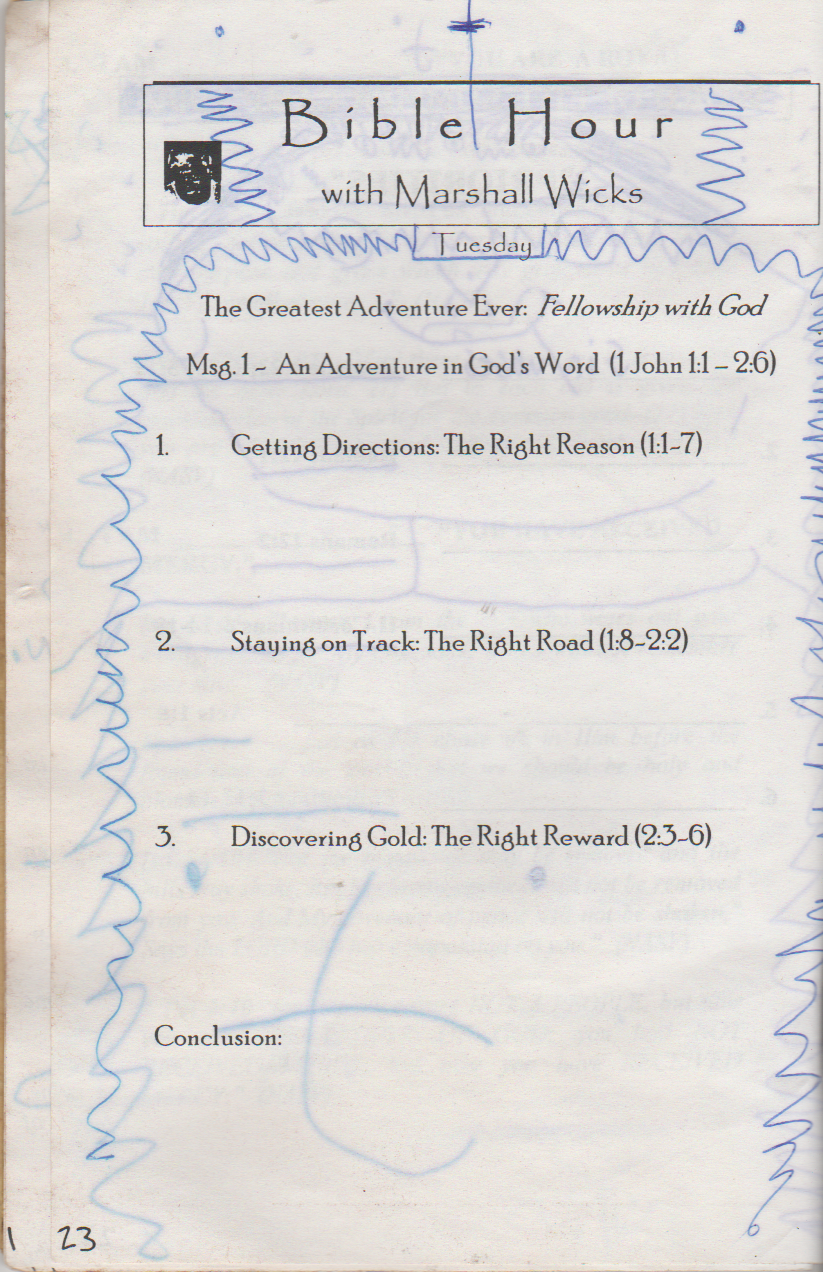 Bible Hour
with Marshall Wicks
Tuesday
The Greatest Adventure Ever: Fellowship with God
Msg. 1 ~ An Adventure in God's Word (1 John 1:1 – 2:6)
1. Getting Directions: The Right Reason (1:1~7)
2. Staying on Track: The Right Road (1:8~2:2)
3. Discovering Gold: The Right Reward (2:3~6)
Conclusion:
1 23